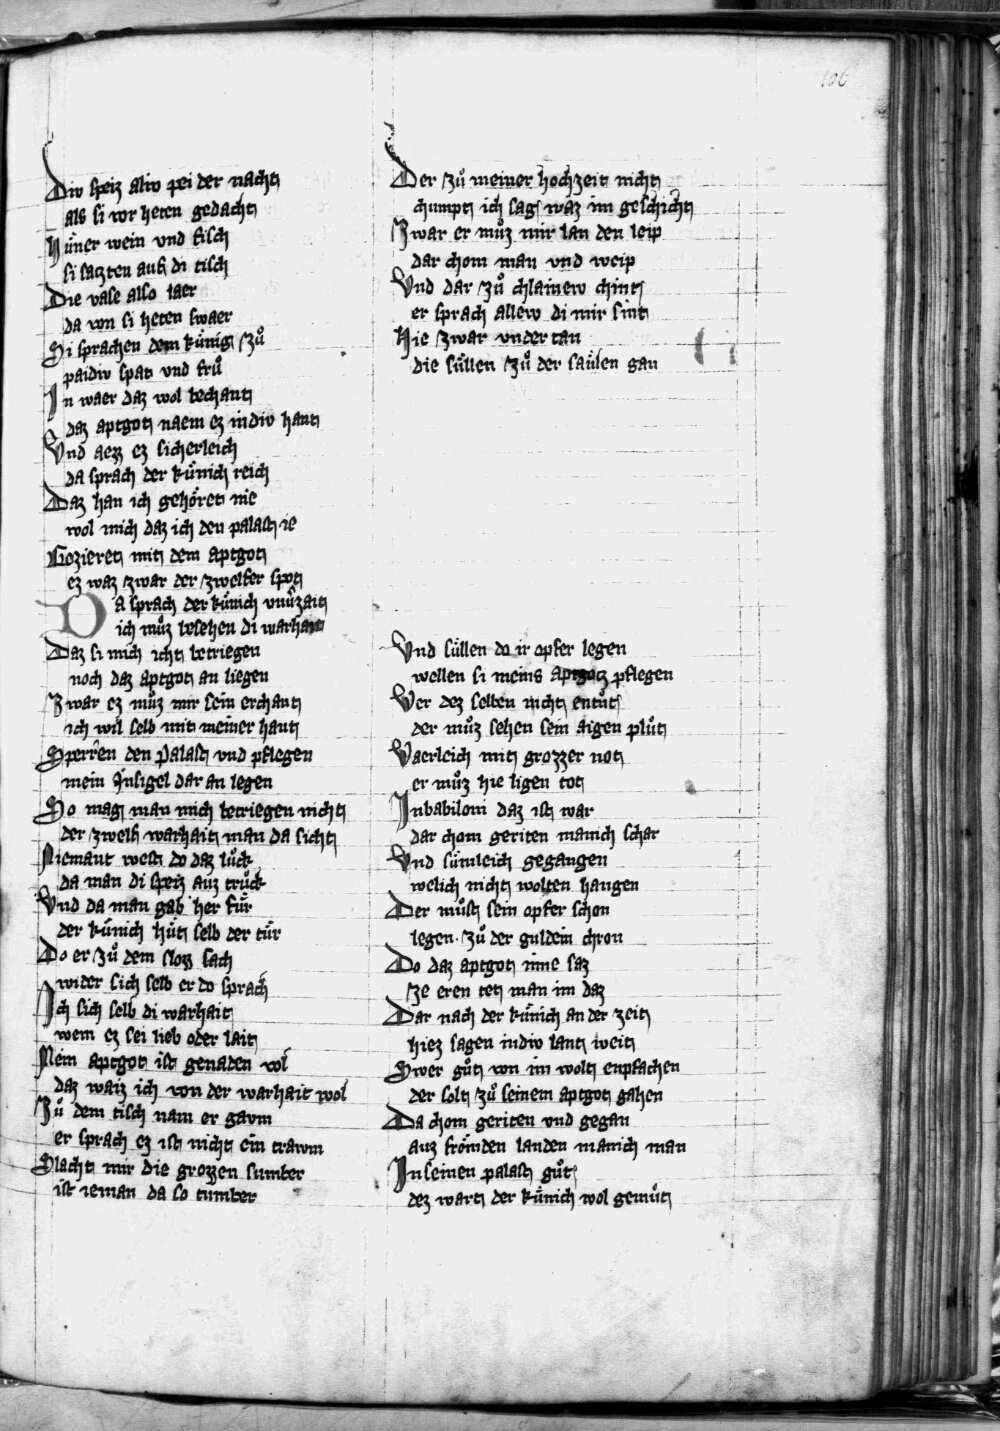 106
Div speiz aliv pei der nacht
als si vor heten gedacht
Hüner wein vnd fisch
si satzten auf di tisch
Die vase also laer
da von si heten swaer
Si sprachen dem künig zů
paidiv spat vnd frů
In waer daz wol bechant
daz aptgot naem ez indiv hant
Vnd aezz ez sicherleich
da sprach der künich reich
Daz han ich gehöret nie
wol mich daz ich den palast ie
Gezieret mit dem aptgot
ez waz zwar der zwelfer spot
Da sprach der künich vnůrzait
ich můz besehen di warhait
Daz si mich icht betriegen
noch daz aptgot an liegen
Zwar ez můz mir sein erchant
ich wil selb mit meiner hant
Sperren den palast vnd pflegen
mein Insigel dar an legen
So mag man mich betriegen nicht
der zwelf warhait man da sicht
Niemant west do daz luck
da man di speiz auz truck
Vnd da man gab her für
der künich hüt selb der tür
Do er zů dem slozz sach
wider sich selb er do sprach
Ich sich selb di warhait
wem ez sei lieb oder lait
Mein aptgot ist genaden vol
daz waiz ich von der warhait wol
Zů dem tisch nam er gavm
er sprach ez ist nicht ein travm
Slacht mir die grozzen sumber
ist ieman da so tumber
Der zů meiner hochzeit nicht
chumpt ich sag waz im geschicht
Zwar er můz mir lan den leip
dar chom man vnd weip
Vnd dar zů chlainew chint
er sprach allew di mir sint
Hie zwar vndertan
die süllen zů der saülen gan
Vnd süllen do ir opfer legen
wellen si meins aptgotz pflegen
Wer dez selben nicht entůt
der můz sehen sein aigen plůt
Waerleich mit grozzer not
er můz hie ligen tot
Inbabiloni daz ist war
dar chom geriten manich schar
Vnd sümleich gegangen
welich nicht wolten hangen
Der můst sein opfer schon
legen zů der guldein chron
Do daz aptgot inne saz
ze eren tet man im daz
Dar nach der künich an der zeit
hiez sagen indiv lant weit
Swer gůt von im wolt enpfachen
der solt zů seinem aptgot gahen
Da chom geriten vnd gegan
auz frömden landen manich man
In seinen palast gůt
dez wart der künich wol gemůt